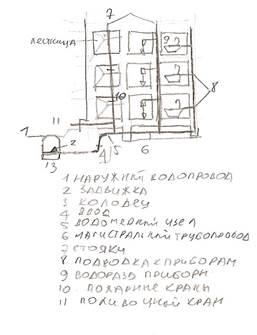 7
ЛЕСТНИЦА
10
8
1
11
2
13
4
5
6
1 НАРУЖНЫЙ ВОДОПРОВОД
2 ЗАДВИЖКА
3 КОЛОДЕЦ
4 ВВОД
5 ВОДОМЕРНЫЙ УЗЕЛ
6 МАГИСТРАЛЬНЫЙ ТРУБОПРОВОД
7 СТОЯКИ
8 ПОДВОДКА К ПРИБОРАМ
9 ВОДОРАЗБ ПРИБОРЫ
10 ПОЖАРНЫЕ КРАНЫ
11 ПОЛИВОЧНЫЙ КРАН